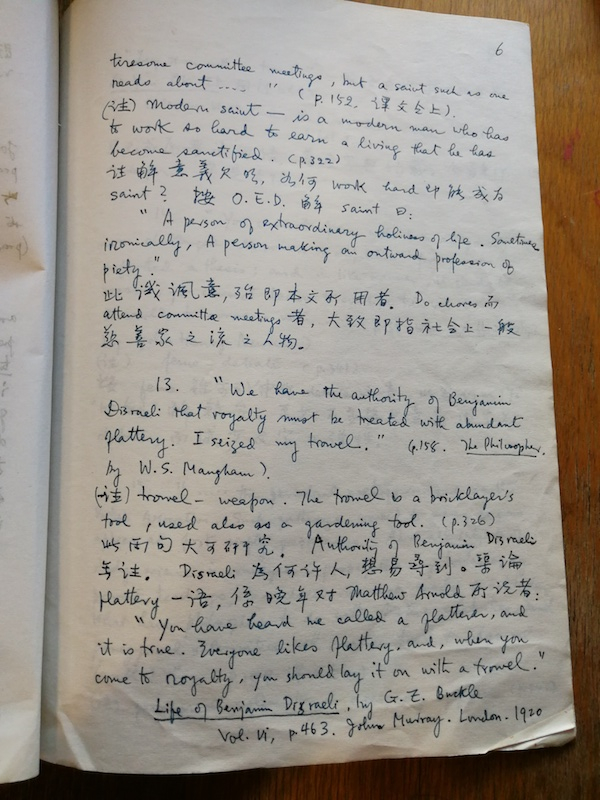 6
tiresome committee meetings, but a saint such as one
reads about .... " (p.152. 譯文仝上).
(注) Modern saint — is a modern man who has
to work so hard to earn a living that he has
become sanctified. (p.322)
注解意義欠明, 為何 work hard 即能成為
saint? 按 O.E.D. 解 saint 曰:
" A person of extraordinary holiness of life. Sometimes
ironically, A person making an outward profession of
piety."
此譏諷意, 殆即本文所用者. Do chores 而
attend committee meetings 者, 大致即指社会上一般
慈善家之流之人物.
13. "We have the authority of Benjamin
Disraeli that royalty must be treated with abundant
flattery. I seized my trowel." (p.158. The Philosopher,
by W.S. Maugham).
(注) trowel – weapon. The trowel is a bricklayer's
tool, used also as a gardening tool. (p.326)
此兩句大可研究. Authority of Benjamin Disraeli
年注. Disraeli 為何許人, 想易尋到。 渠論
flattery 一語, 係晚年对 Matthew Arnold 所说者:
"You have heard me called a flatterer, and
it is true. Everyone likes flattery, and, when you
come to royalty, you should lay it on with a trowel."
Life of Benjamin Disraeli, by G.E. Buckle
Vol. vi, p.463. John Murray. London. 1920